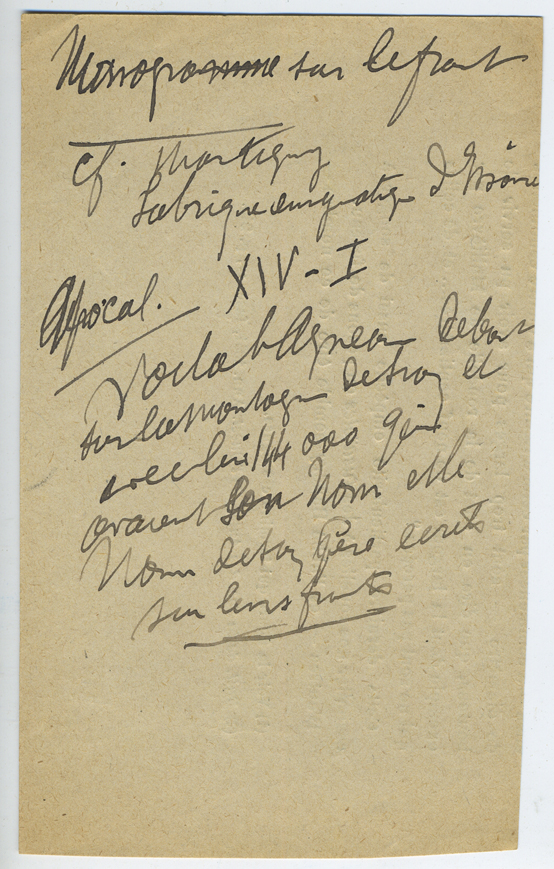 Monogramme sur le front
cf. Martigny
d'Isaïe
Apocal. XIV - I
Voila l'Agneau debout
sur la Montagne de Sion et
avec lui 144 000 qui
avaient Son Nom et le
Nom de son Père écrits
sur leurs fronts